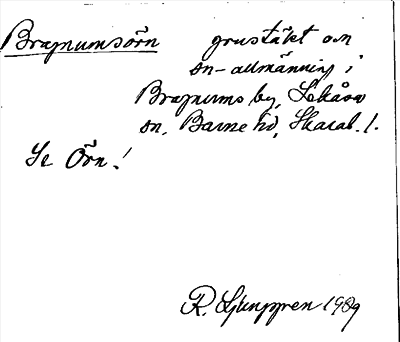 Bragnumsörn grustäkt och
sn-allmänning i
Bragnums by, Lekåsa
sn, Barne hd, Skarab. l.
Se Örn!
R. Ljunggren 1989